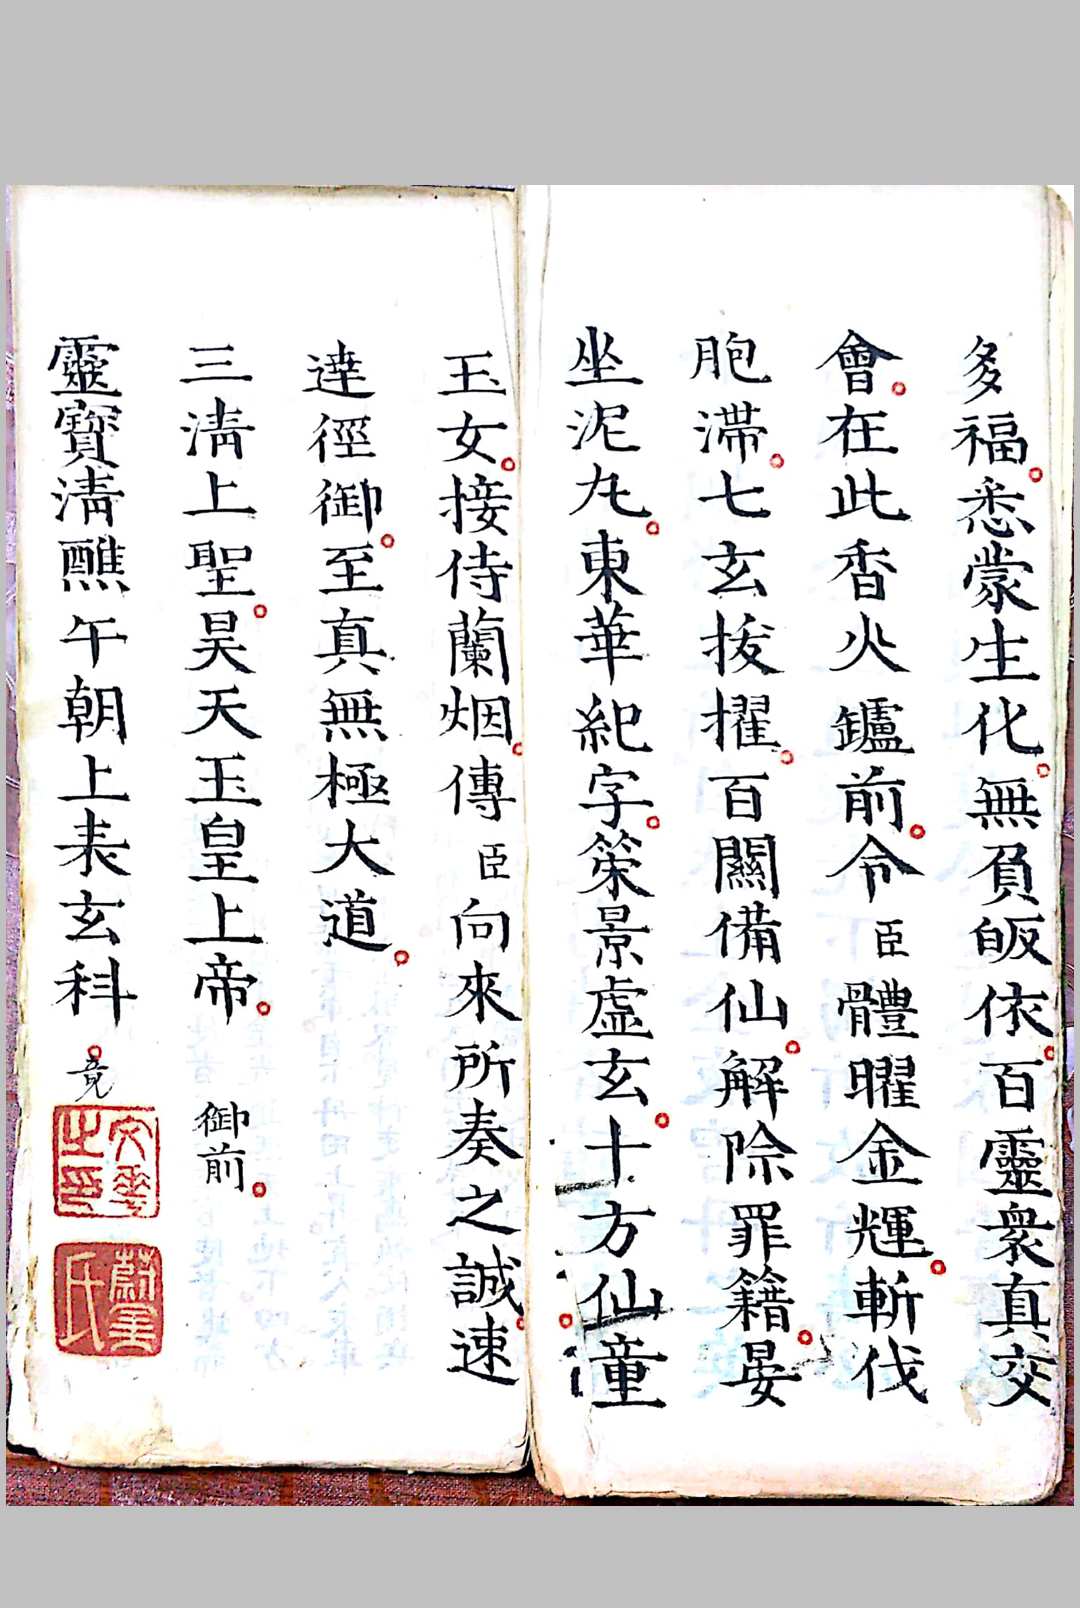 多福。悉蒙生化。無負皈依。百靈衆真交
會。在此香火鑪前。令臣體曜金輝。斬伐
胞滯。七玄拔擢。百關備仙。解除罪籍。晏
坐泥丸。東華紀字。策景虛玄。十方仙童。
玉女。接侍蘭烟。傳臣向來所奏之誠。速
達徑御。至真無極大道。
三淸上聖。昊天玉皇上帝。御前。
靈寶淸醮午朝上表玄科。竟
文華之印
蔚里氏